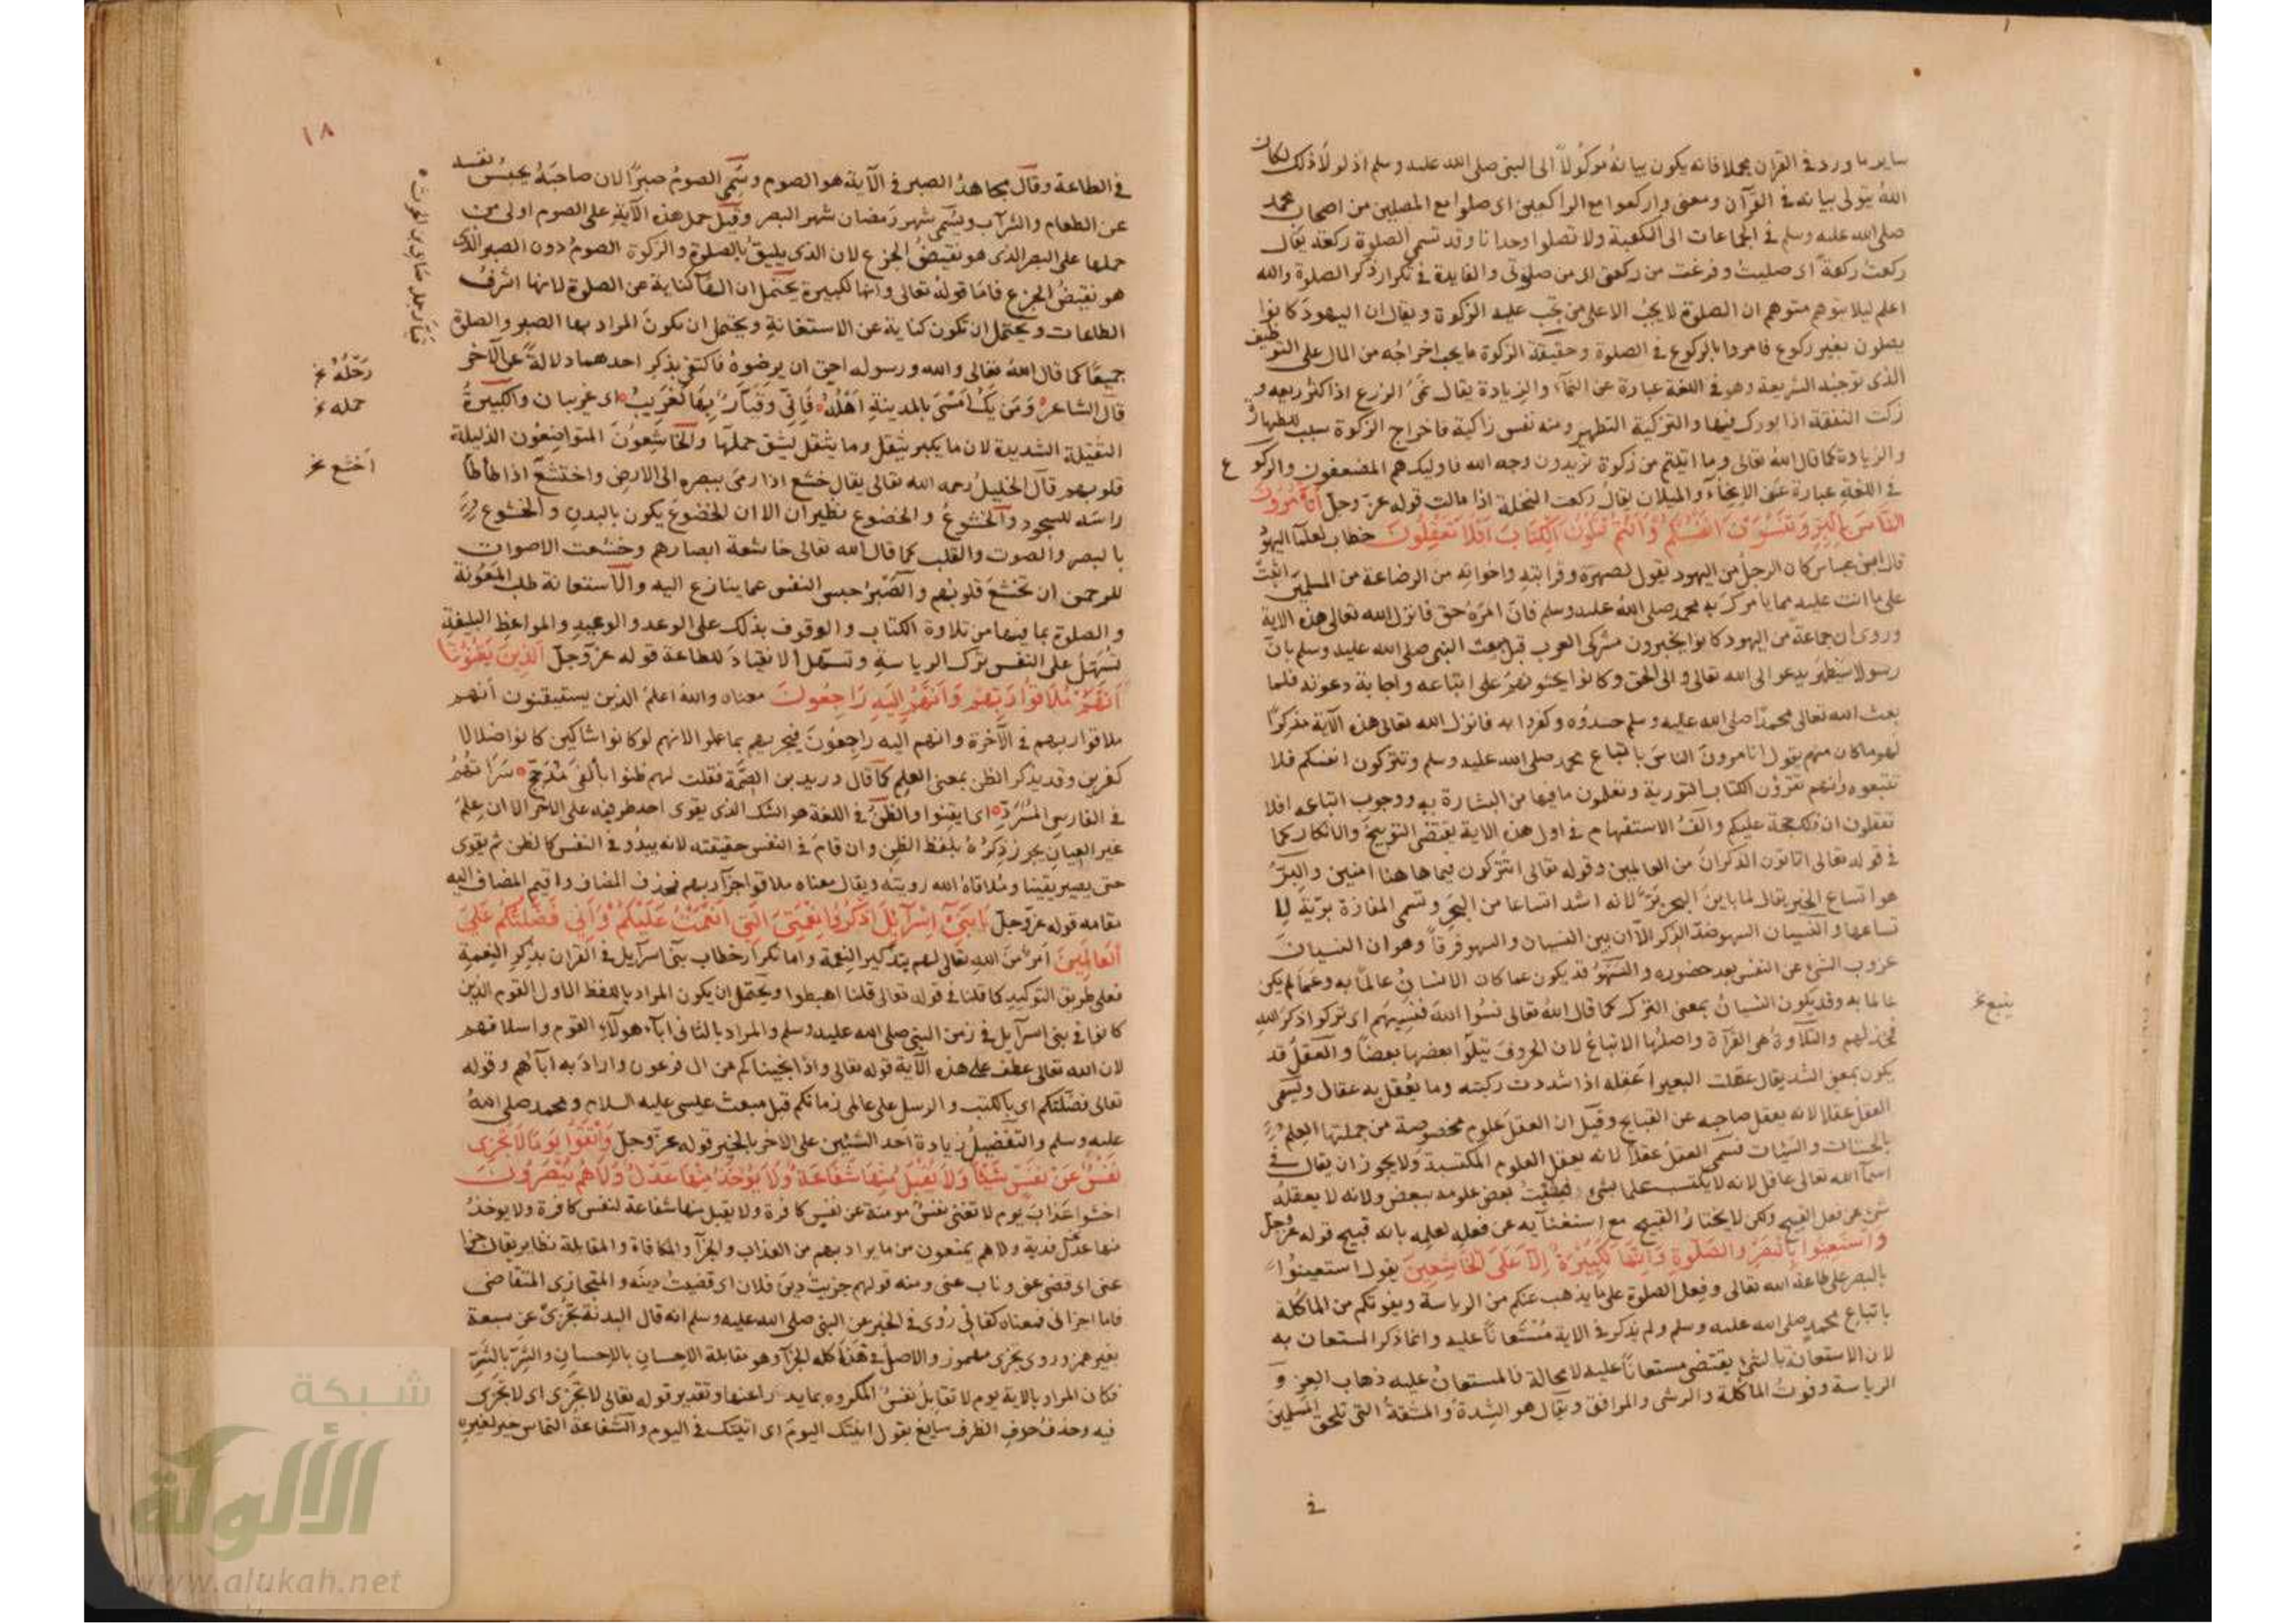 ساير ما ورد في القران مجملا فانه يكون بيانه موكولاً الى النبي صلى الله عليه وسلم اذ لولا ذلك لكان
الله يتولى بيانه في القرآن ومعنى واركعوا مع الراكعين اي صلوا مع المصلين من اصحاب محمد
صلى الله عليه وسلم في الجماعات الى الكعبة ولا تصلوا وحدانا وقد تسمى الصلوة ركعة يقال
ركعت ركعة اي صليت وفرغت من ركعتي اي من صلوتي والفايدة في تكرار ذكر الصلوة والله
اعلم ليلا يتوهم متوهم ان الصلوة لا يجب الا على من تجب عليه الزكوة ويقال ان اليهود كانوا
يصلون بغير ركوع فامروا بالركوع في الصلوة وحقيقة الزكوة ما يجب اخراجه من المال على التوظيف
الذي توجبه الشريعة وهو في اللغة عبارة عن النمآء والزيادة يقال نمى الزرع اذا كثر ريعه و
زكت النفقة اذا بورك فيها والتزكية التطهير ومنه نفس زاكية فاخراج الزكوة سبب للطهارة
والزيادة كما قال الله تعالى وما اتيتم من زكوة تريدون وجه الله فاوليك هم المضعفون والركوع
في اللغة عبارة عن الانحنآء والميلان يقال ركعت النخلة اذا مالت قوله عز وجل أتأمرون
الناس بالبر وتنسون انفسكم وانتم تتلون الكتاب افلا تعقلون خطاب لعلمآ اليهود
قال ابن عباس كان الرجل من اليهود يقول لصهره وقرابته واخوانه من الرضاعة من المسلمين اثبت
على ما انت عليه مما يامرك به محمد صلى الله عليه وسلم فان امره حق فانزل الله تعالى هذه الاية
وروى ان جماعة من اليهود كانوا يخبرون مشركي العرب قبل مبعث النبي صلى الله عليه وسلم بان
رسولا سيظهر يدعو الى الله تعالى والى الحق وكانوا يحثونهم على اتباعه واجابة دعوته فلما
بعث الله تعالى محمدا صلى الله عليه وسلم حسدوه وكفروا به فانزل الله تعالى هذه الآية مذكرا
لهم ما كان منهم يقول اتامرون الناس باتباع محمد صلى الله عليه وسلم وتتركون انفسكم فلا
تتبعوه وانتم تقرؤن الكتاب التورية وتعلمون ما فيها من البشارة به ووجوب اتباعه افلا
تعقلون ان ذلك حجة عليكم والف الاستفهام في اول هذه الاية يقتضى التوبيخ والانكار كما
في قوله تعالى اتاتون الذكران من العالمين وقوله تعالى اتتركون فيما هاهنا امنين والبر
هو اتساع الخير يقال لما بين البحر بر لانه اشد اتساعا من البحر وتسمى المفازة برية لا
تساعها والنسيان السهو ضد الذكر الا ان بين النسيان والسهو فرقا وهو ان النسيان
عزوب الشئ عن النفس بعد حضوره والسهو قد يكون عما كان الانسان عالما به وعما لم يكن
عالما به وقد يكون النسيان بمعنى الترك كما قال الله تعالى نسوا الله فنسيهم اي تركوا ذكر الله
فخذلهم والتلاوة هي القرآة واصلها الاتباع لان الحروف يتلوا بعضها بعضا والعقل قد
يتبع نخ
يكون بمعنى الشد يقال عقلت البعير اعقله اذا شددت ركبته وما يعقل به عقال ويسمى
العقل عقلا لانه يعقل صاحبه عن القبايح وقيل ان العقل علوم مخصوصة من جملتها العلم
بالحسنات والسيئات فسمى العقل عقلا لانه يعقل العلوم المكتسبة ولا يجوز ان يقال في
اسمآ الله تعالى عاقل لانه لا يكتسب علما بشئ بعض علومه ببعض ولانه لا يعقله
شئ عن فعل القبيح ولكن لا يختار القبيح مع استغنآيه عن فعله لعلمه بانه قبيح قوله عز وجل
واستعينوا بالصبر والصلوة وانها لكبيرة الا على الخاشعين يقول استعينوا
بالصبر على طاعة الله تعالى وفعل الصلوة على ما يذهب عنكم من الرياسة ويفوتكم من الماكلة
باتباع محمد صلى الله عليه وسلم ولم يذكر في الاية مستعانا عليه وانما ذكر المستعان به
لان الاستعانة بالشئ يقتضى مستعانا عليه لا محالة فالمستعان عليه ذهاب العز و
الرياسة وفوت الماكلة والرشى والمرافق ويقال هو الشدة والمشقة التي تلحق المسلمين
في
١٨
في الطاعة وقال مجاهد الصبر في الآية هو الصوم وسمى الصوم صبرا لان صاحبه يحبس نفسه
عن الطعام والشرآب ويسمى شهر رمضان شهر الصبر وقيل حمل هذه الآية على الصوم اولى من
حملها على الصبر الذي هو نقيض الجزع لان الذي يليق بالصلوة والزكوة الصوم دون الصبر الذي
هو نقيض الجزع فاما قوله تعالى وانها لكبيرة يحتمل ان الهآ كناية عن الصلوة لانها اشرف
الطاعات ويحتمل ان تكون كناية عن الاستعانة ويحتمل ان يكون المراد بها الصبر والصلوة
جميعا كما قال الله تعالى والله ورسوله احق ان يرضوه فاكتفى بذكر احدهما دلالة على الآخر
رحله نخ
قال الشاعر ومن يك امسى بالمدينة اهله فاني وقيار بها لغريب اي غريبان والكبيرة
حمله نخ
الثقيلة الشديدة لان ما يكبر يثقل وما يثقل يشق حملها والخاشعون المتواضعون الذليلة
قلوبهم قال الخليل رحمه الله تعالى يقال خشع اذا رمى ببصره الى الارض واختشع اذا طأطأ
اخشع نخ
راسه للسجود والخشوع والخضوع نظيران الا ان الخضوع يكون بالبدن والخشوع
بالبصر والصوت والقلب كما قال الله تعالى خاشعة ابصارهم وخشعت الاصوات
للرحمن ان تخشع قلوبهم والصبر حبس النفس عما ينازع اليه والاستعانة طلب المعونة
والصلوة بما فيها من تلاوة الكتاب والوقوف بذلك على الوعد والوعيد والمواعظ البليغة
تسهل على النفس ترك الرياسة وتسهل الانقياد للطاعة قوله عز وجل الذين يظنون
انهم ملاقوا ربهم وانهم اليه راجعون معناه والله اعلم الذين يستيقنون انهم
ملاقوا ربهم في الآخرة وانهم اليه راجعون فيجزيهم بما عملوا لانهم لو كانوا شاكين كانوا ضلالا
كفرين وقد يذكر الظن بمعنى العلم كما قال دريد بن الصمة فقلت لهم ظنوا بألفي مدجج سراتهم
في الفارسي المسرد اي ايقنوا والظن في اللغة هو الشك الذي يقوى احد طرفيه على الاخر الا ان علم
غير العيان يجوز ذكره بلفظ الظن وان قام في النفس حقيقته لانه يبدو في النفس كالظن ثم يقوى
حتى يصير يقينا وملاقاة الله رويته ويقال معناه ملاقوا جزآ ربهم فحذف المضاف واقيم المضاف اليه
مقامه قوله عز وجل يا بني اسرآيل اذكروا نعمتي التي انعمت عليكم واني فضلتكم على
العالمين امر من الله تعالى لهم بتذكير النعمة واما تكرار خطاب بني اسرآيل في القران بذكر النعمة
فعلى طريق التوكيد كما قلنا في قوله تعالى قلنا اهبطوا ويحتمل ان يكون المراد باللفظ الاول القوم الذين
كانوا في بني اسرآيل في زمن النبي صلى الله عليه وسلم والمراد بالثاني ابآء هولآء القوم واسلافهم
لان الله تعالى عطف على هذه الآية قوله تعالى واذ انجيناكم من ال فرعون واراد به ابآئهم وقوله
تعالى فضلتكم اي بالكتب والرسل على عالمي زمانكم قبل مبعث عيسى عليه السلام ومحمد صلى الله
عليه وسلم والتفضيل زيادة احد الشيئين على الاخر بالخير قوله عز وجل واتقوا يوما لا تجزى
نفس عن نفس شيئا ولا يقبل منها شفاعة ولا يوخذ منها عدل ولا هم ينصرون
اخشوا عذاب يوم لا تغني نفس مومنة عن نفس كافرة ولا يقبل منها شفاعة لنفس كافرة ولا يوخذ
منها عدل فدية ولا هم يمنعون من ما يراد بهم من العذاب والجزآ والمكافاة والمقابلة نظاير يقال جزا
عني اي قضى عني وناب عني ومنه قولهم جزيت دين فلان اي قضيت دينه والمتجازي المتقاضي
فاما اجزاني فمعناه كفاني روى في الخبر عن النبي صلى الله عليه وسلم انه قال البدنة تجزى عن سبعة
بغير همز وروى يجزى مهموز والاصل في هذا كله الجزآ وهو مقابلة الاحسان بالاحسان والشر بالشر
فكان المراد بالاية يوم لا تقابل نفس المكروه بما يد راعنها وتقدير قوله تعالى لا تجزى اي لا تجزى
فيه وحذف حرف الظرف سايغ يقول اتيتك اليوم اي اتيتك في اليوم والشفاعة التماس خير لغيره
شبكة
الألوكة
www.alukah.net